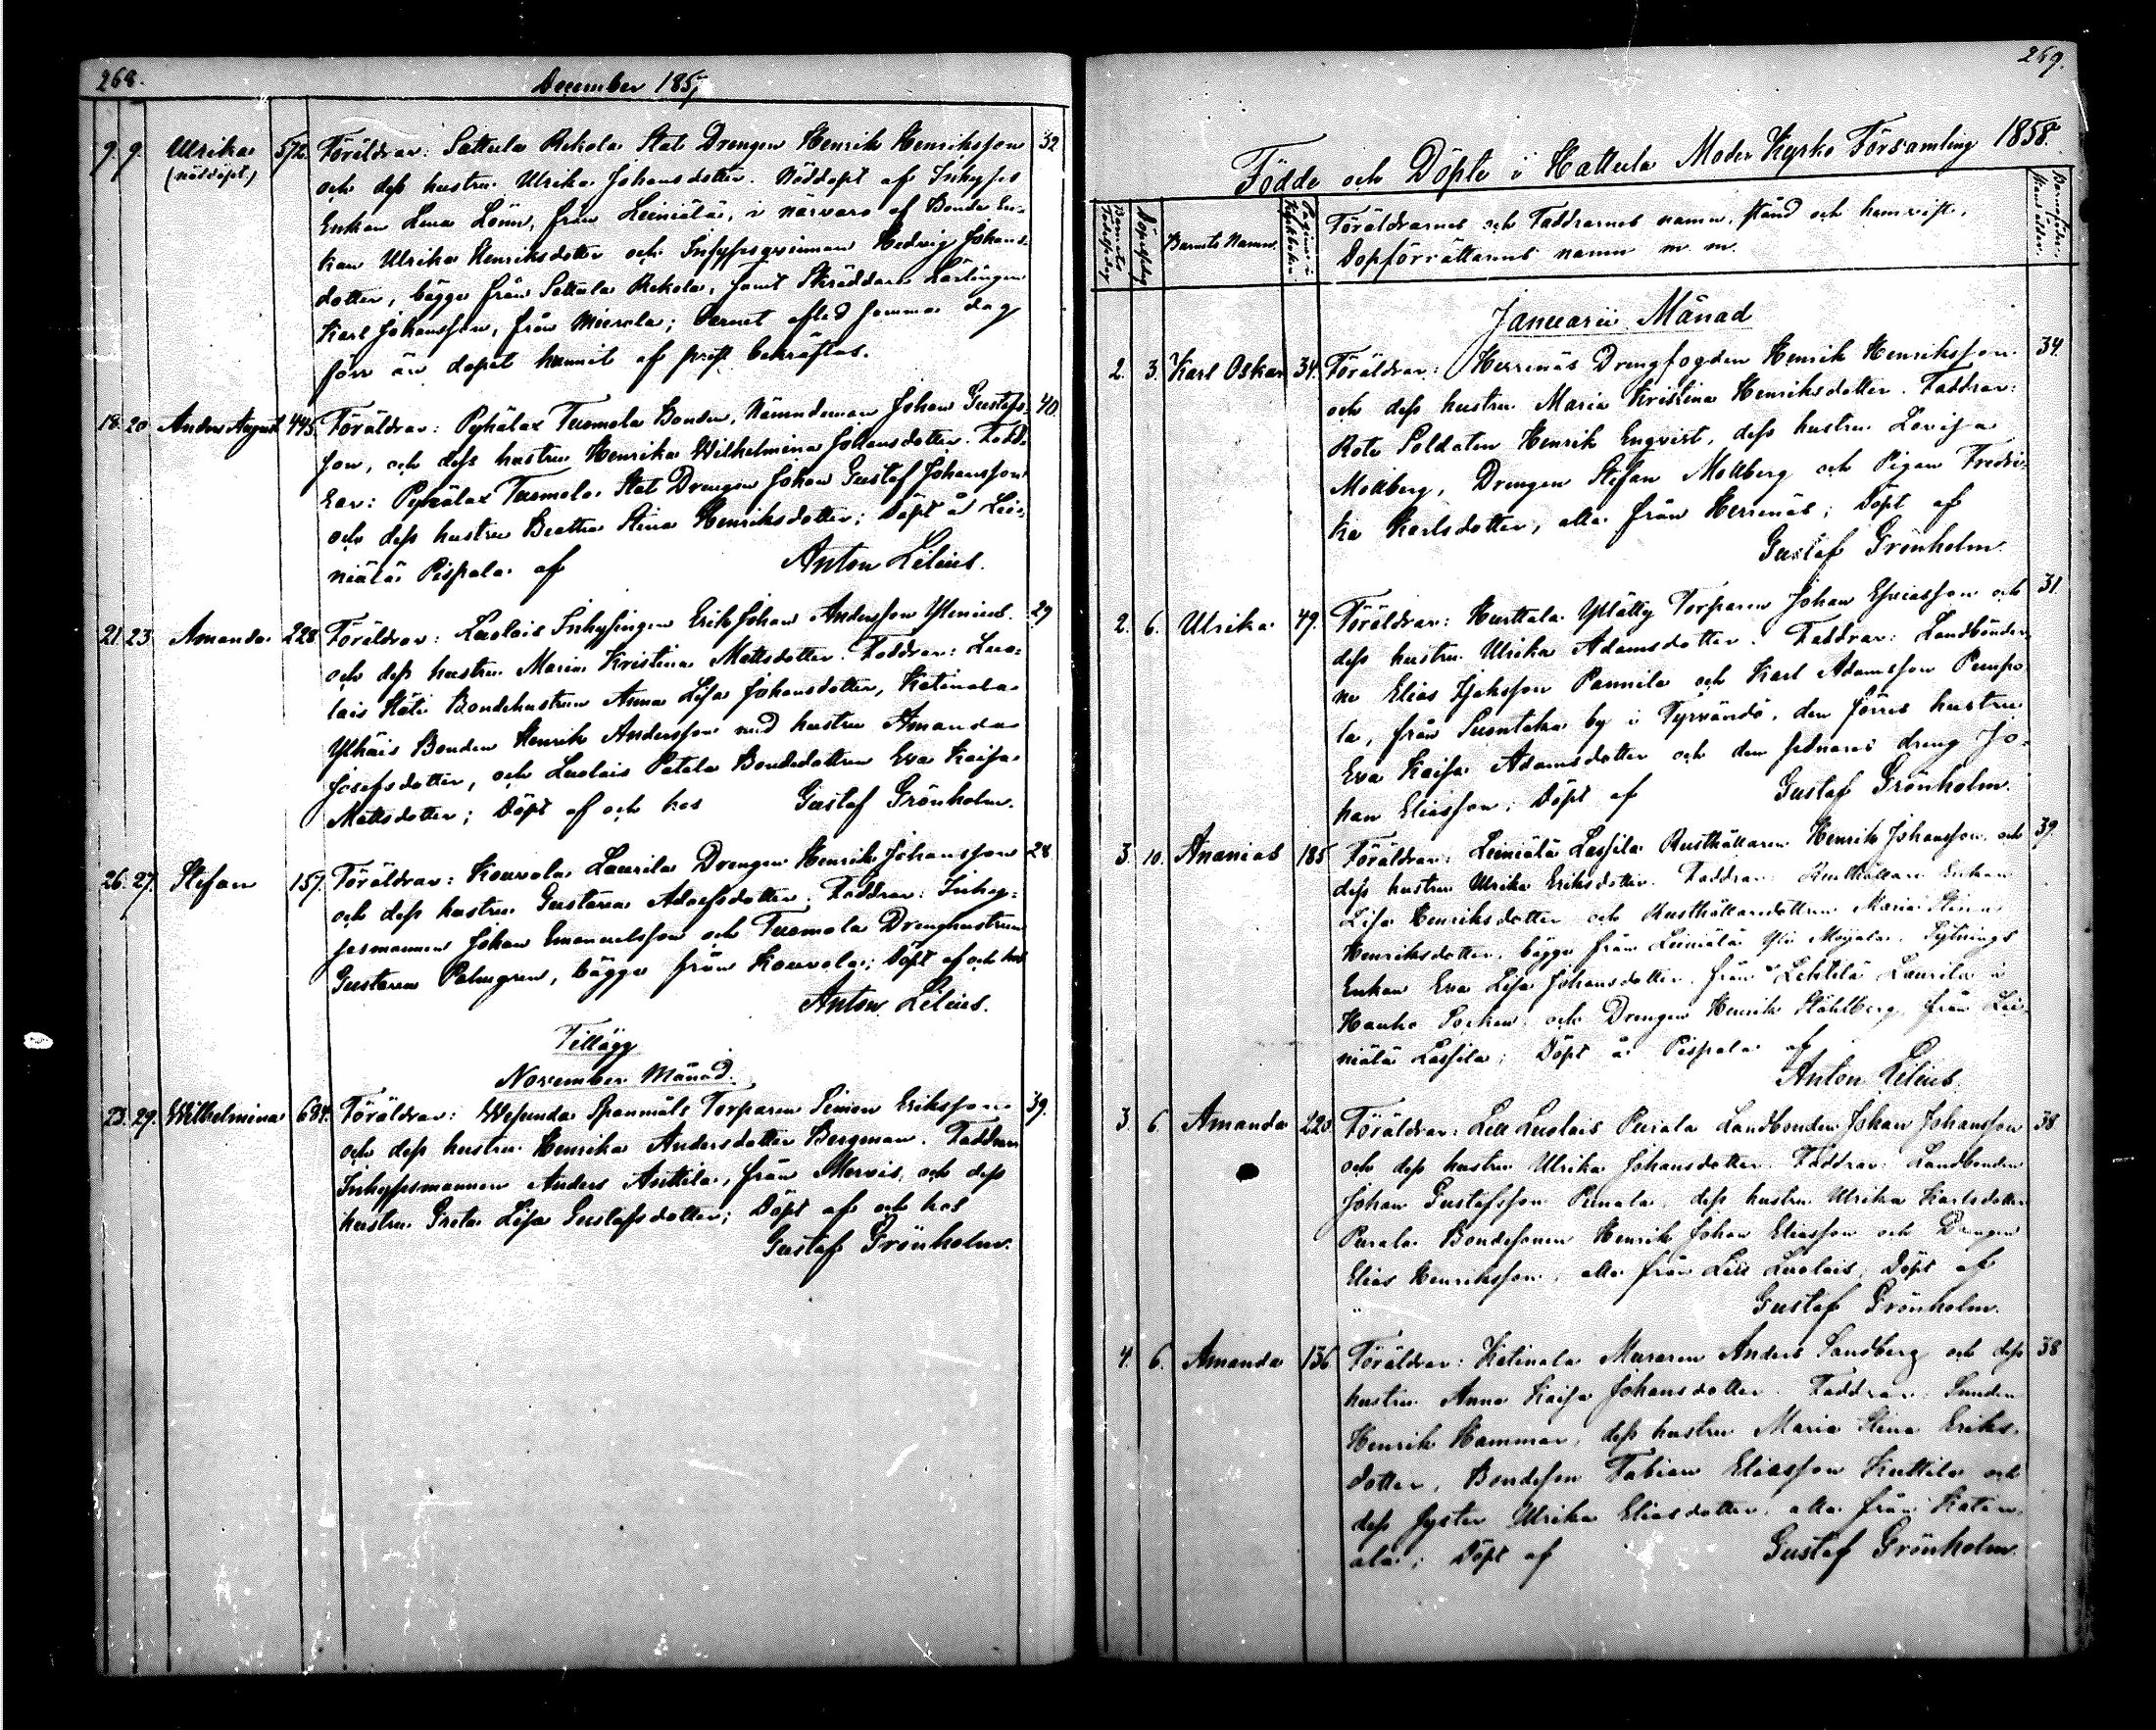 268.
December 1857
9. 9. Ulrika 572. Föräldrar: Sattula Rekola Stats Drengen Henrik Henriksson 32
(nöddöpt) och dess hustru Ulrika Johansdotter. Nöddöpt af Inhyses
Enkan Lena Lönn, från Leiniälä, i närvaro af Bonde En-
kan Ulrika Henriksdotter och Inhysesqvinnan Hedvig Johans-
dotter, bägge från Sattula Rekola, samt Skräddare Lärlingen
Karl Johansson, från Mierola; Barnet afled samma dag
förr än dopet hunnit af prest bekräftas.
18. 20. Anders August 445. Föräldrar: Pyhälax Tuomola Bonden, Nämndeman Johan Gustafs- 40.
son, och dess hustru Henrika Wilhelmina Johansdotter. Fadd-
rar: Pyhälax Tuomola Stat Drengen Johan Gustaf Johansson
och dess hustru Beatha Stina Henriksdotter; Döpt å Lei-
niälä Pispala af Anton Lilius.
21. 23. Amanda 228 Föräldrar: Luolais Inhysingen Erik Johan Andersson Ylenius 29
och dess hustru Maria Kristina Mattsdotter. Faddrar: Luo-
lais Häti Bondehustrun Anna Lisa Johansdotter, Katinala
Ylhäis Bonden Henrik Andersson med hustru Amanda
Josefsdotter, och Luolais Patala Bondedottren Eva Kaisa
Mattsdotter; Döpt af och hos Gustaf Grönholm.
26. 27. Stefan 157. Föräldrar: Kouvola Laurila Drengen Henrik Johansson 28.
och dess hustru Gustava Adolfsdotter. Faddrar: Inhy-
sesmannen Johan Emanuelsson och Tuomola Drenghustrun
Gustava Palmgren, bägge från Kouvola; Döpt af och hos
Anton Lilius.
Tillägg
November Månad.
23. 29. Wilhelmina 684. Föräldrar: Wesunda Spannmåls Torparen Simon Eriksson 39.
och dess hustru Henrika Andersdotter Bergman. Faddrar
Inhysesmannen Anders Anttila, från Mervis, och dess
hustru Greta Lisa Gustafsdotter; Döpt af och hos
Gustaf Grönholm.
269.
Födde och Döpte i Hattula Moder Kyrko Församling 1858.
Barnets Födelsedag Döpelsedag Barnets Namn. Pagina i Kyrkboken. Föräldrarnes och Faddrarnes namn, stånd och hemvist,
Dopförrättarens namn m. m. Barnaföder-skans ålder.
Januarii Månad
2. 3. Karl Oskar 34. Föräldrar: Herrenäs Drengfogden Henrik Henriksson 34.
och dess hustru Maria Kristina Henriksdotter. Faddrar:
Rote Soldaten Henrik Engvist, dess hustru Lovisa
Mollberg, Drengen Stefan Mollberg och Pigan Fredri-
ka Karlsdotter, alla från Herrenäs; Döpt af
Gustaf Grönholm.
2. 6. Ulrika 49. Föräldrar: Hurttala Torparen Johan Esaiasson och 31.
dess hustru Ulrika Adamsdotter. Faddrar: Landbönder-
ne Elias Isaksson Pannila och Karl Adamsson Pumpo-
la, från Suontaka by i Tyrvändö, den förres hustru
Eva Kaisa Adamsdotter och den sednares dreng Jo-
han Eliasson; Döpt af Gustaf Grönholm.
3. 10. Ananias 185 Föräldrar: Leiniälä Lassila Rusthållaren Henrik Johansson och 39.
dess hustru Ulrika Eriksdotter. Faddrar: Rusthållare Enkan
Lisa Henriksdotter och Rusthållaredottren Maria Stina
Henriksdotter, bägge från Leiniälä Yli Moijala. Sytnings
Enkan Eva Lisa Johansdotter, från Lehtelä Laurila i
Hauho Socken och Drengen Henrik Ståhlberg från Lei-
niälä Lassila; Döpt å Pispala af
Anton Lilius.
3. 6. Amanda 223 Föräldrar: Lill Luolais Purala Landbonden Johan Johansson 38
och dess hustru Ulrika Johansdotter. Faddrar: Landbonden
Johan Gustafsson Punala, dess hustru Ulrika Karlsdotter
Purala Bondesonen Henrik Johan Eliasson och Drengen
Elias Henriksson, alla från Lill Luolais; Döpt af
Gustaf Grönholm.
4. 6. Amanda 136 Föräldrar: Katinala Muraren Anders Sandberg och dess 38
hustru Anna Kaisa Johansdotter. Faddrar: Smeden
Henrik Hammar, dess hustru Maria Stina Eriks-
dotter, Bondeson Fabian Eliasson Kuttila och
dess syster Ulrika Eliasdotter, alla från Katin-
ala; Döpt af Gustaf Grönholm.